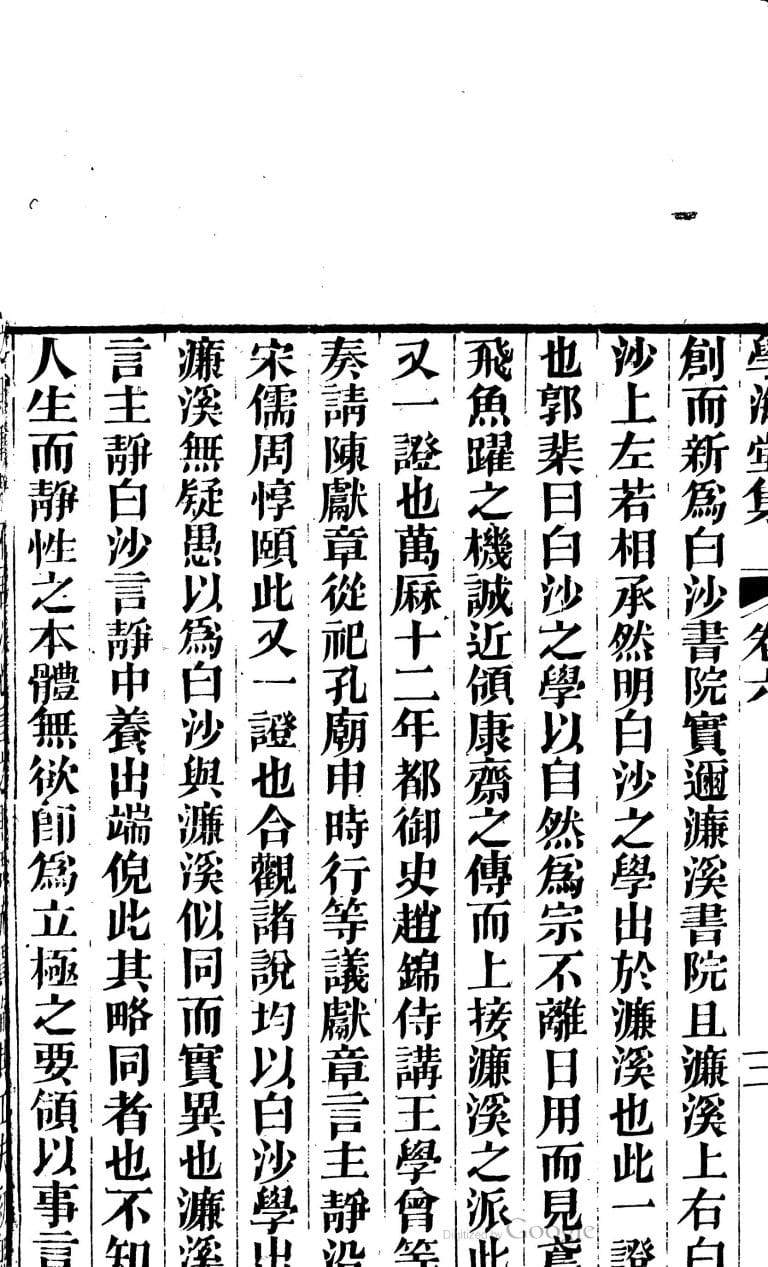 學海堂集 卷六 三
創而新爲白沙書院實邇濂溪書院且濂溪上右白
沙上左若相承然明白沙之學出於濂溪也此一證
也郭棐曰白沙之學以自然爲宗不離日用而見鳶
飛魚躍之機誠近領康齋之傳而上接濂溪之派此
又一證也萬厤十二年都御史趙錦侍講王學曾等
奏請陳獻章從祀孔廟申時行等議獻章言主靜沿
宋儒周惇頤此又一證也合觀諸說均以白沙學出
濂溪無疑愚以爲白沙與濂溪似同而實異也濂溪
言主靜白沙言靜中養出端倪此其略同者也不知
人生而靜性之本體無欲卽爲立極之要領以事言
Digitized by Google